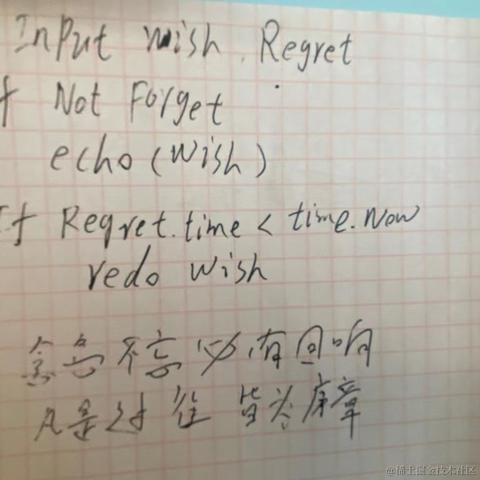 Input wish, Regret
f Not Forget
echo (wish)
If Regret.time < time.Now
redo wish
念念不忘 必有回响
凡是过往 皆为序章
@稀土掘金技术社区